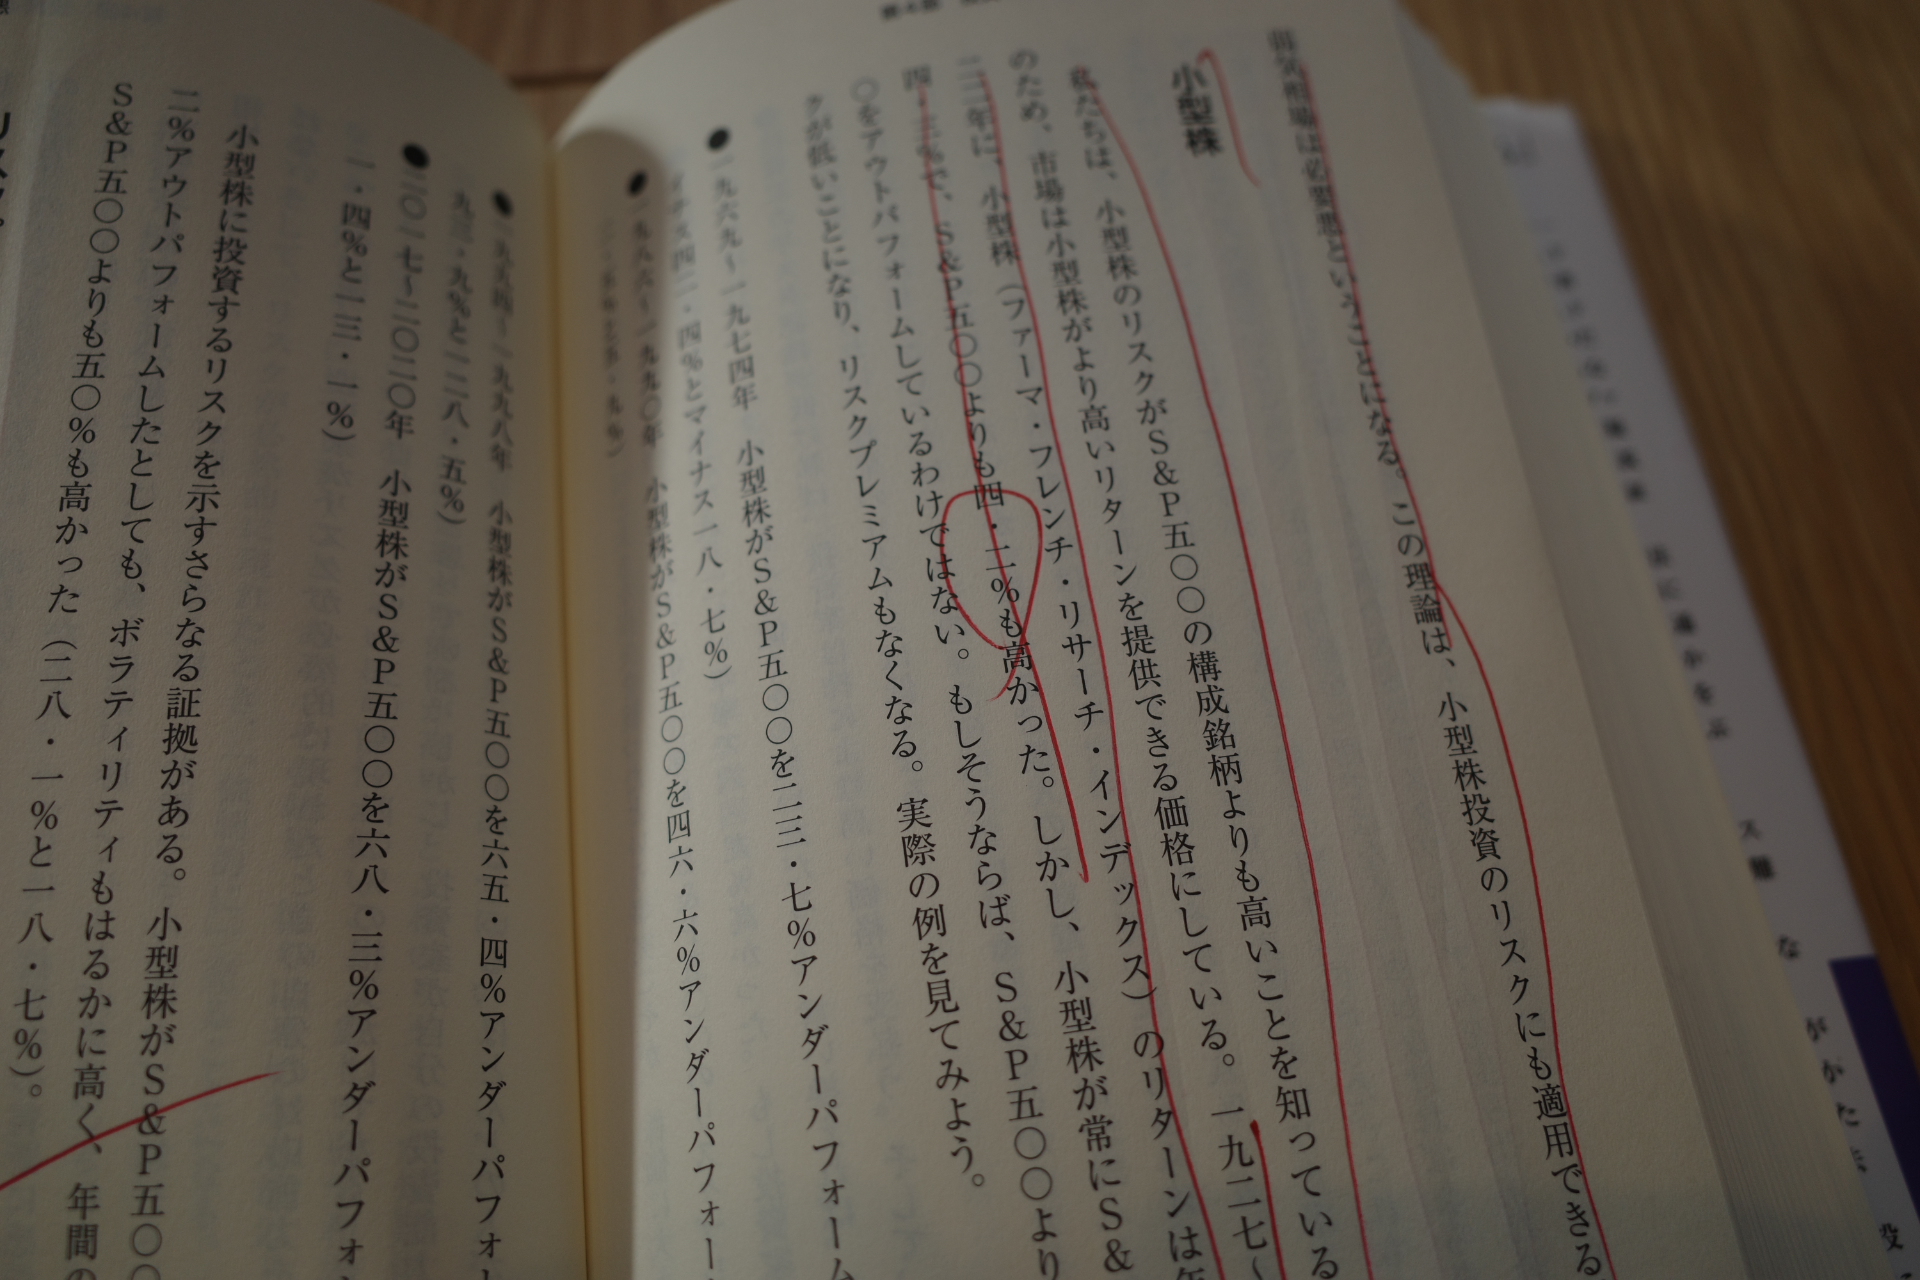 弱気相場は必要悪ということになる。この理論は、小型株投資のリスクにも適用できる。
小型株
私たちは、小型株のリスクがS&P五〇〇の構成銘柄よりも高いことを知っている
のため、市場は小型株がより高いリターンを提供できる価格にしている。一九二七〜
年に、小型株（ファーマ・フレンチ・リサーチ・インデックス）のリターンは年
%で、S&P五〇〇よりも四・二%も高かった。しかし、小型株が常にS&
〇をアウトパフォームしているわけではない。もしそうならば、S&P五〇〇より
クが低いことになり、リスクプレミアムもなくなる。実際の例を見てみよう。
●一九六九〜一九七四年　小型株がS&P五〇〇を二三・七%アンダーパフォーム
マイナス四二・四%とマイナス一八・七%）
●一九八六〜一九九〇年　小型株がS&P五〇〇を四六・六%アンダーパフォー
●一九九四〜一九九八年　小型株がS&P五〇〇を六五・四%アンダーパフォー
九三・九%と一二八・五%）
●二〇一七〜二〇二〇年　小型株がS&P五〇〇を六八・三%アンダーパフォ
一・四%と一三・一%）
小型株に投資するリスクを示すさらなる証拠がある。小型株がS&P五〇〇
二%アウトパフォームしたとしても、ボラティリティもはるかに高く、年間の
S&P五〇〇よりも五〇%も高かった（二八・一%と一八・七%）。